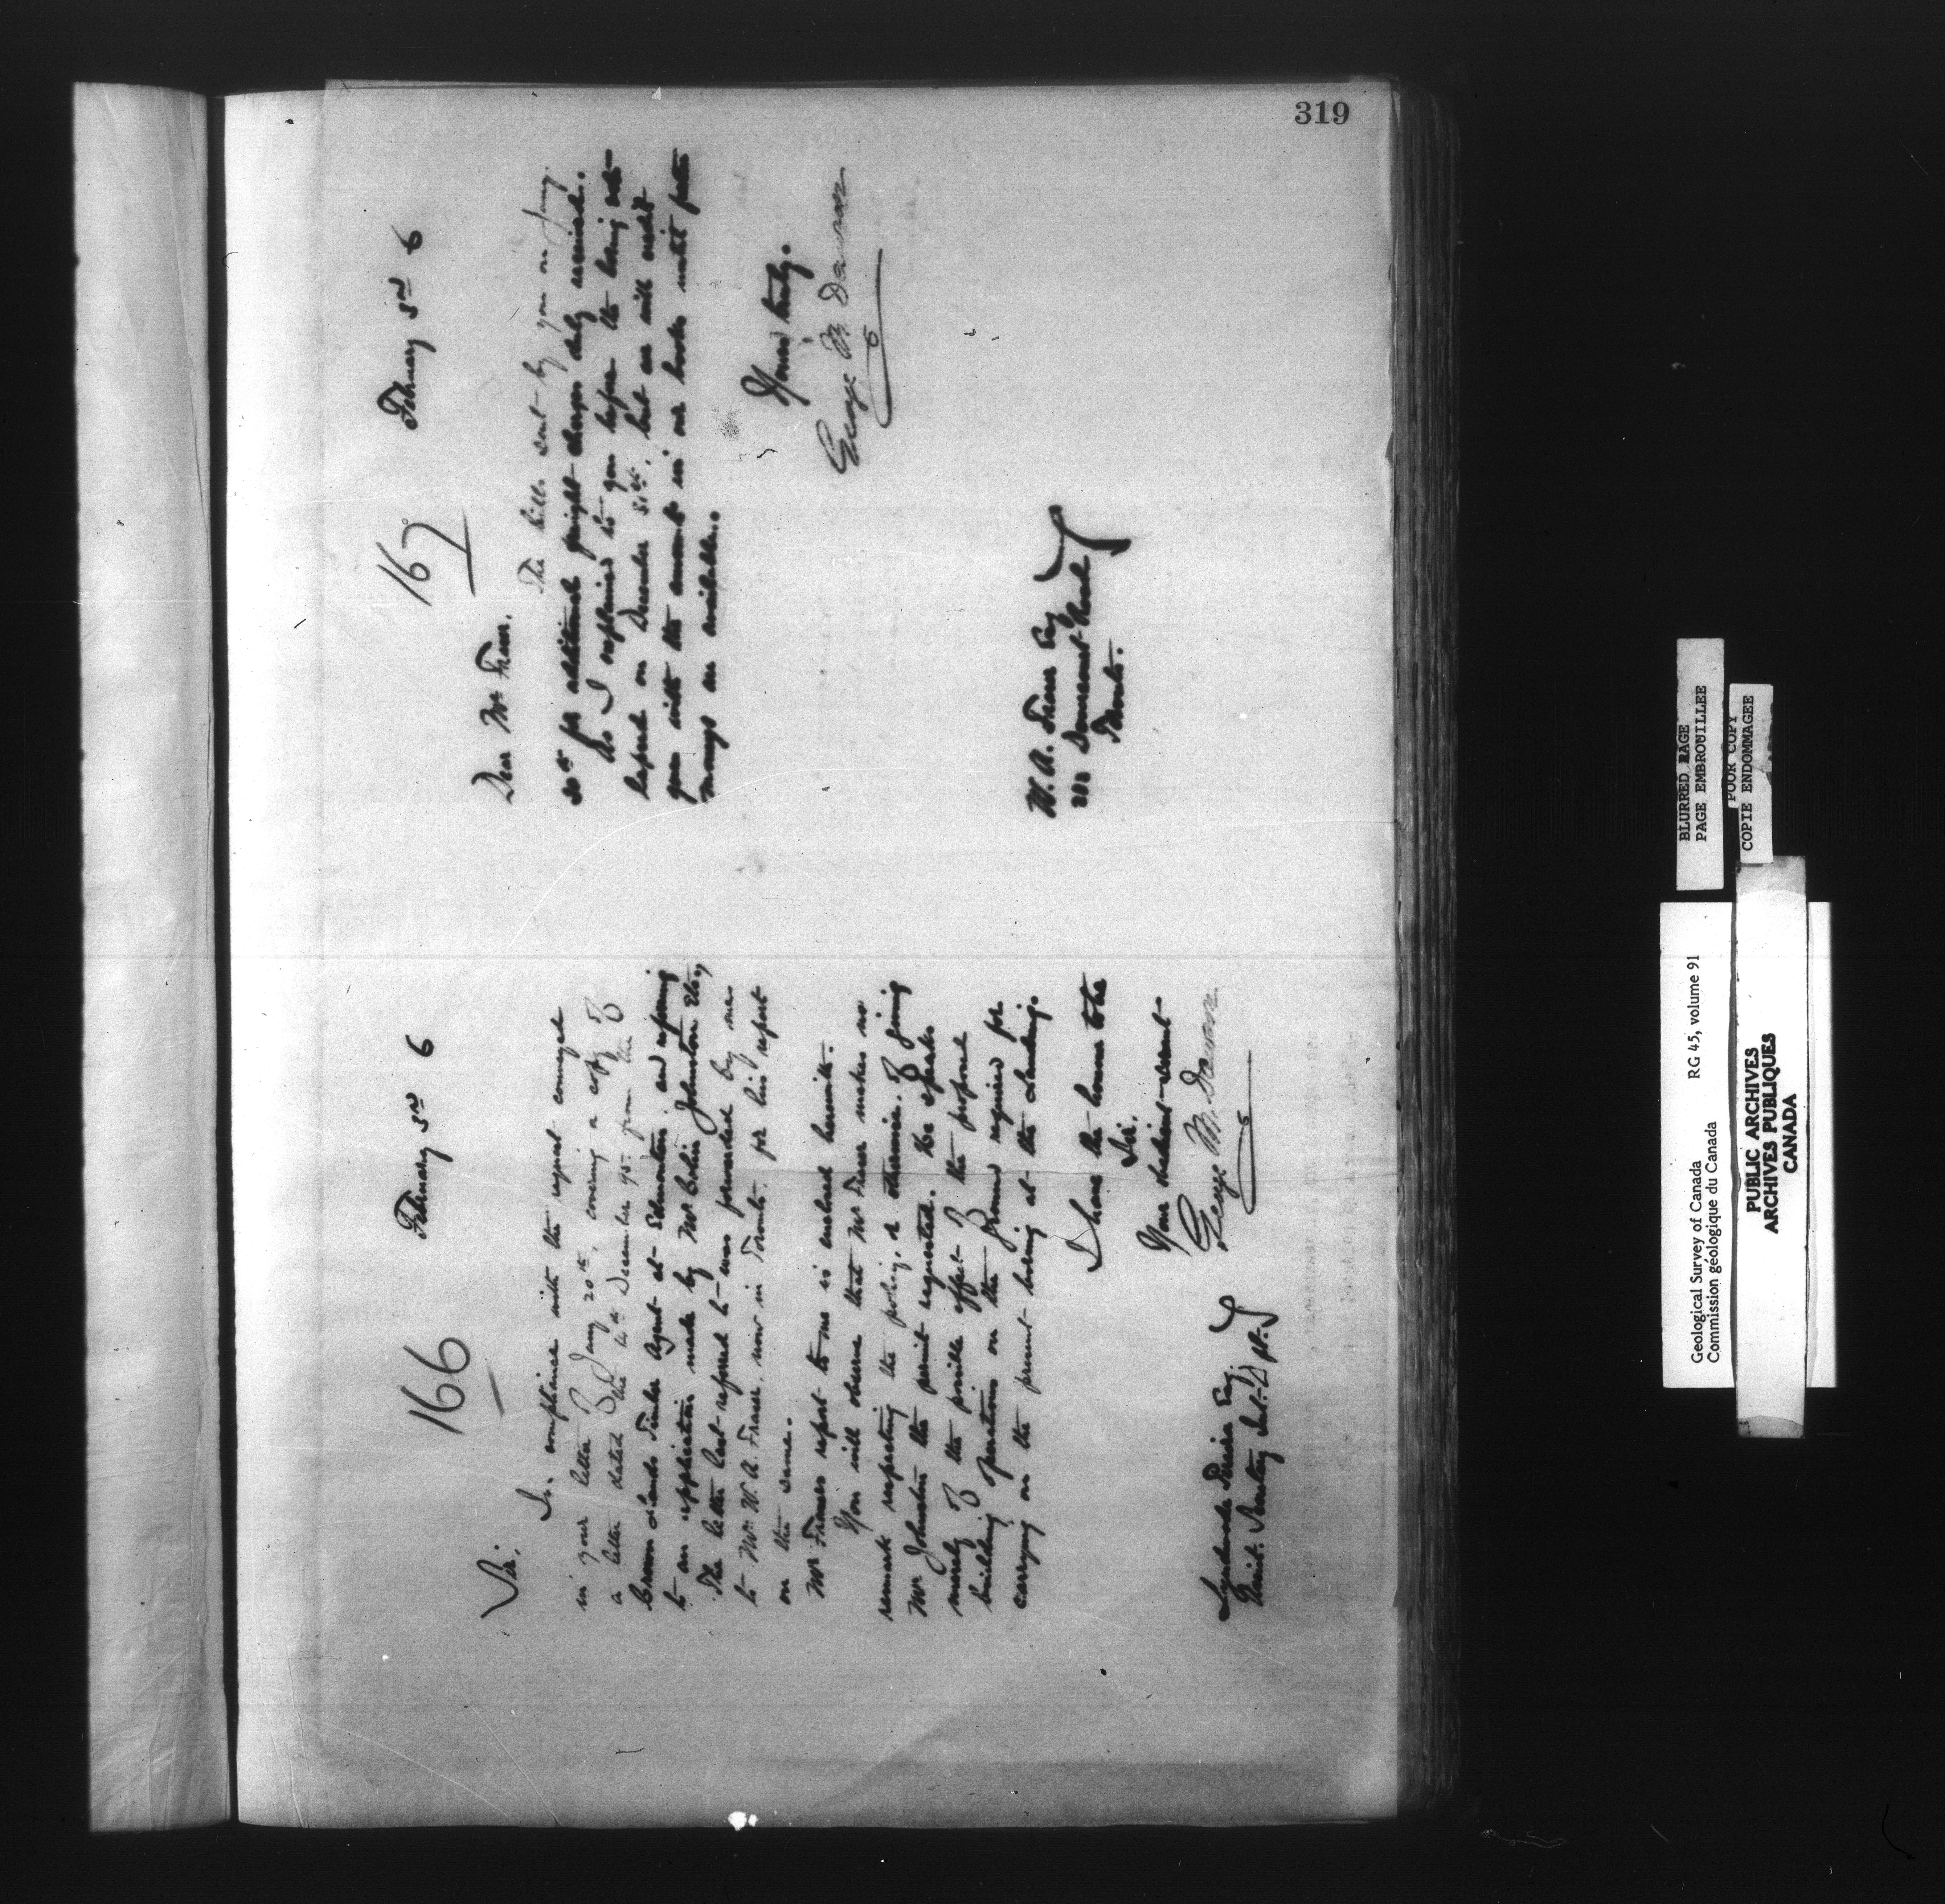 319
166
February 3rd 6
Sir,
In compliance with the request conveyed
in your letter of Jany 20th, covering a copy of
a letter dated the 14th December 95 from the
Crown Lands Timber Agent at Edmonton and referring
to an application made by Mr Colin Johnston etc,
The letter last referred to was forwarded by me
to Mr W. A. Fraser, now in Toronto, for his report
on the same.
Mr Frasers report to me is enclosed herewith.
You will observe that Mr Fraser makes no
remark respecting the policy, or otherwise, of giving
Mr Johnston the permit requested. He speaks
merely of the possible effect of the proposed
building operations on the ground required for
carrying on the present boring at the Landing.
I have the honour to be
Sir,
Your obedient servant
George M. Dawson
Lyndwode Pereira Esq
Asst. Secretary Int. Dept.
167
February 3rd 6
Dear Mr Fraser,
The bill sent by you on Jany.
30th for additional freight charges duly received.
As I explained to you before the boring vote
lapsed on December 31st, but we will credit
you with the amount in our books until further
moneys are available.
Yours truly.
George M Dawson
W. A. Fraser Esq
202 Dovercourt Road
Toronto.
BLURRED PAGE
PAGE EMBROUILLEE
POOR COPY
COPIE ENDOMMAGEE
Geological Survey of Canada RG 45, volume 91
Commission géologique du Canada
PUBLIC ARCHIVES
ARCHIVES PUBLIQUES
CANADA